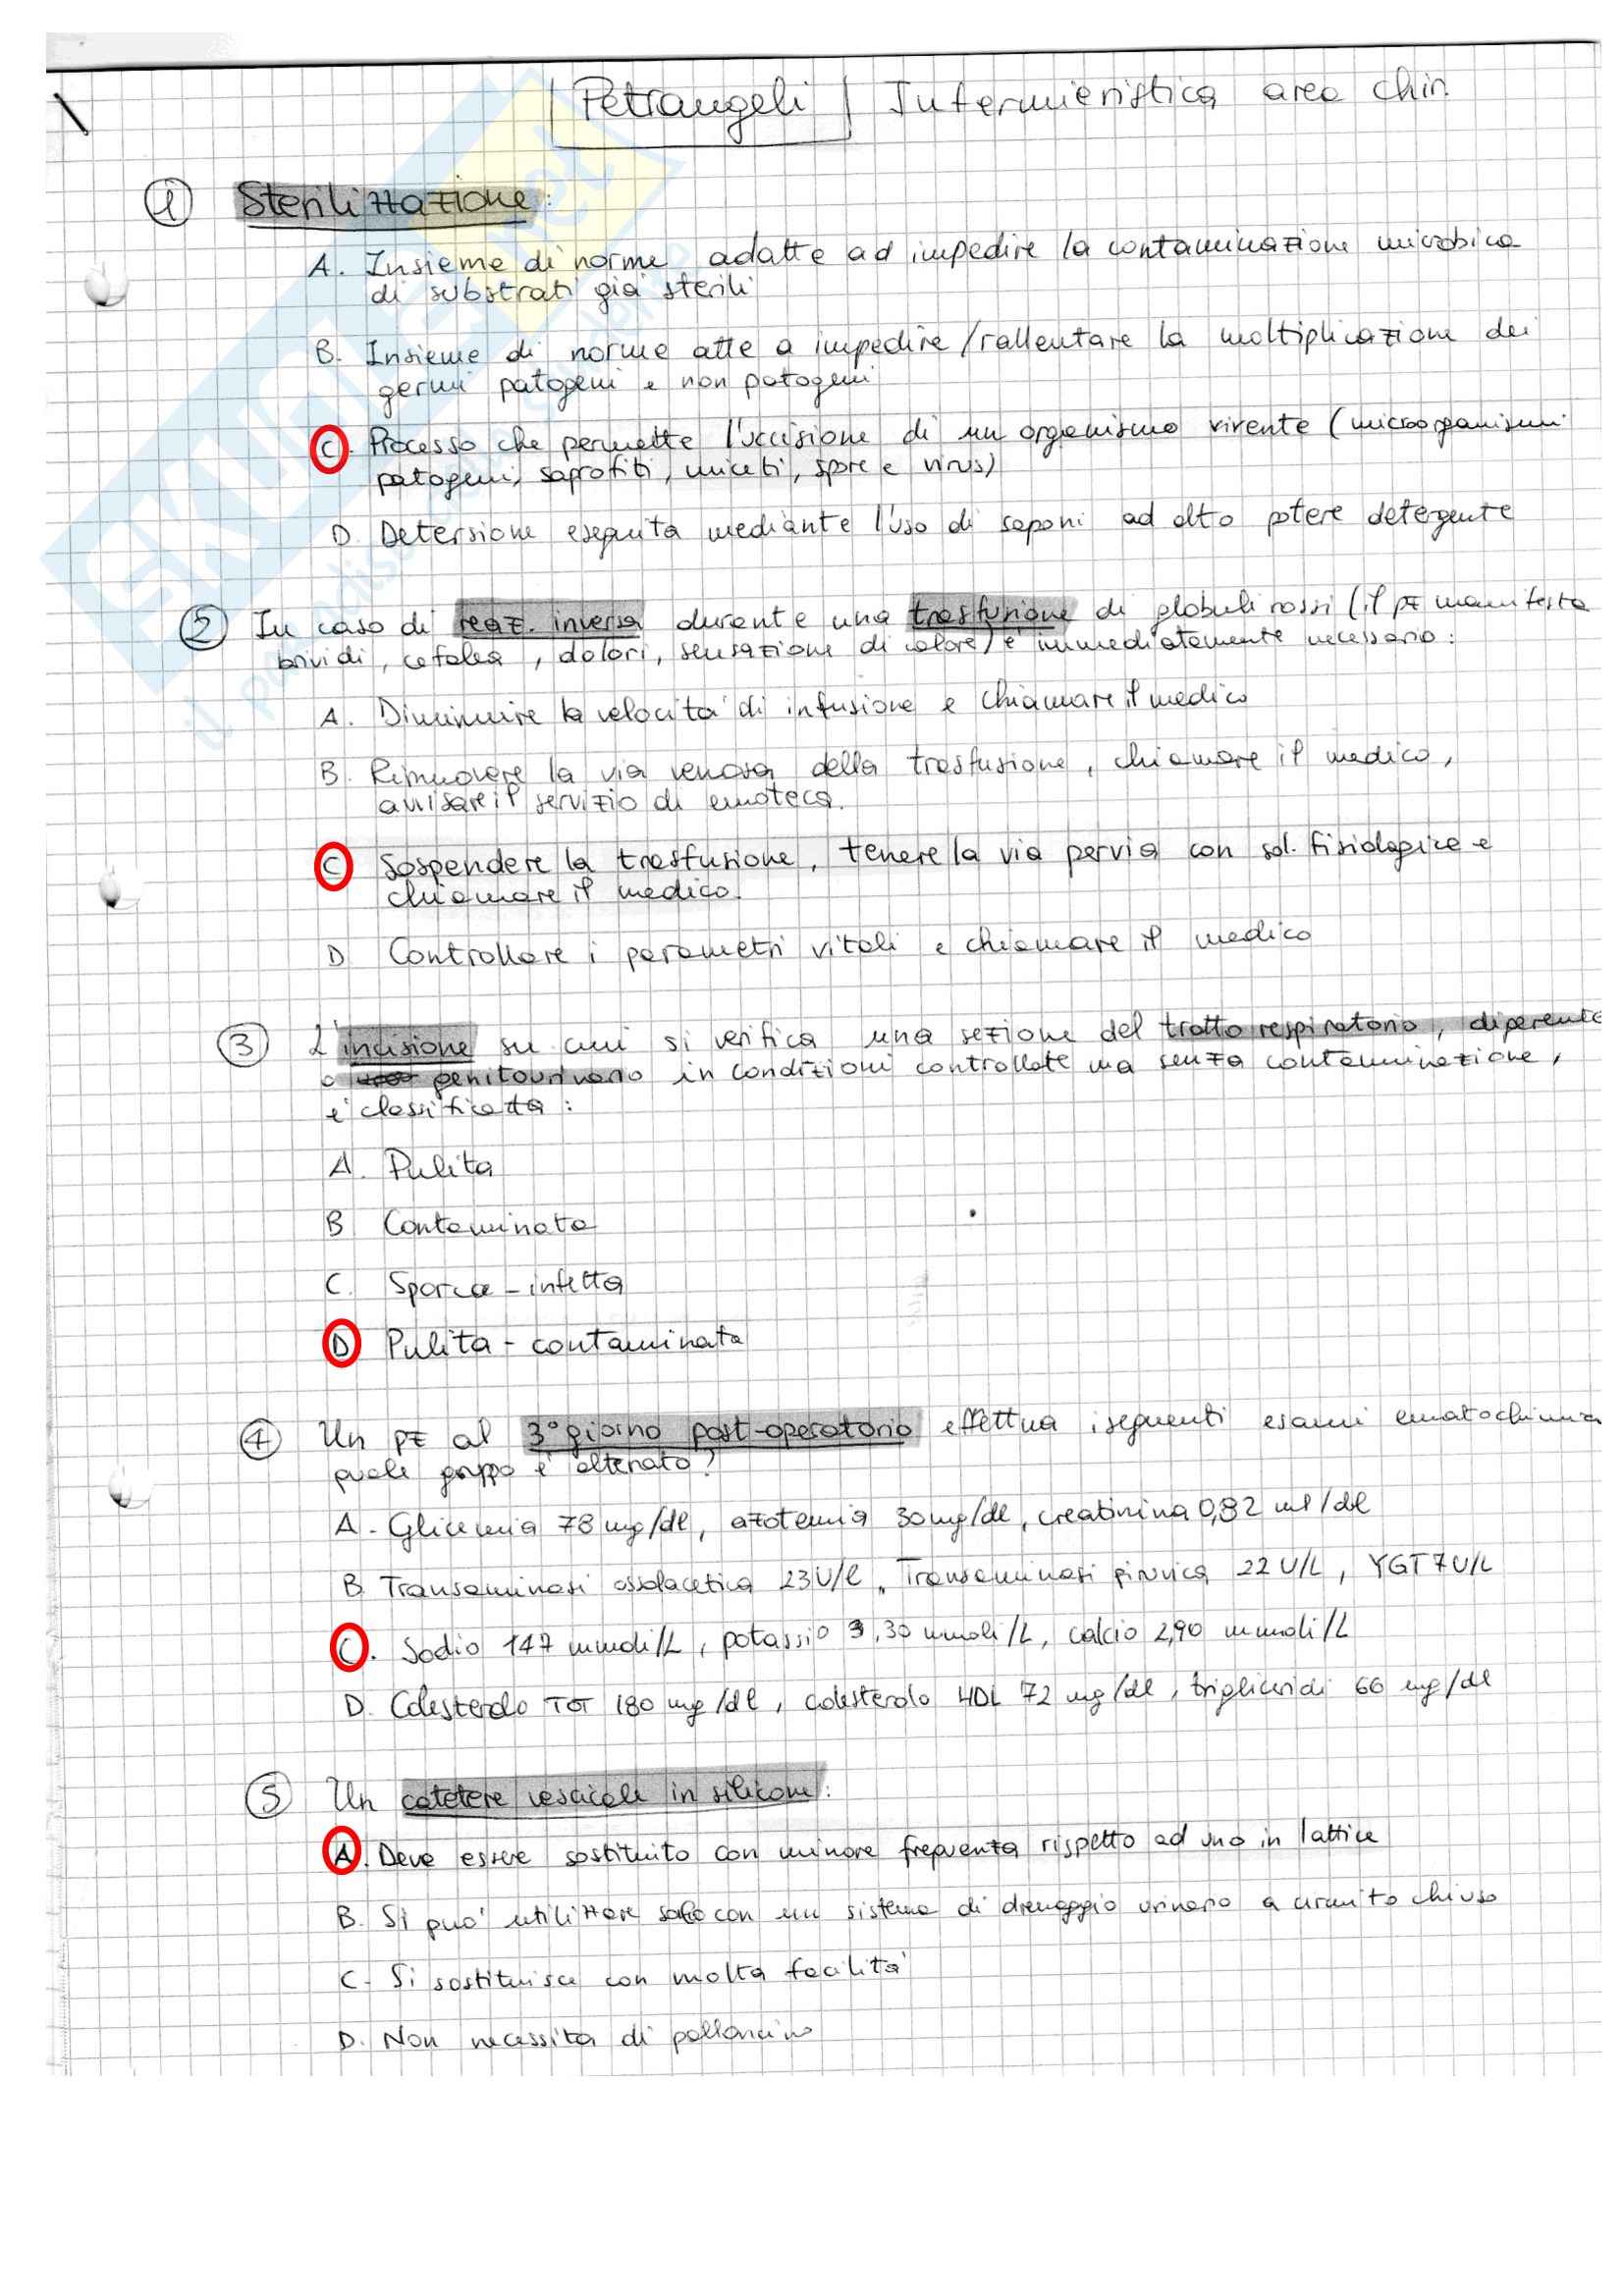 Petrangeli Infermieristica area chir.
① Sterilizzazione:
A. Insieme di norme adatte ad impedire la contaminazione microbica
di substrati già sterili
B. Insieme di norme atte a impedire/rallentare la moltiplicazione dei
germi patogeni e non patogeni
C. Processo che permette l'uccisione di un organismo vivente (microorganismi
patogeni, saprofiti, miceti, spore e virus)
D. Detersione eseguita mediante l'uso di saponi ad alto potere detergente
② In caso di reaz. inversa durante una trasfusione di globuli rossi (il pz manifesta
brividi, cefalea, dolori, sensazione di calore) è immediatamente necessario:
A. Diminuire la velocità di infusione e chiamare il medico
B. Rimuovere la via venosa della trasfusione, chiamare il medico,
avvisare il servizio di emoteca.
C Sospendere la trasfusione, tenere la via pervia con sol. fisiologica e
chiamare il medico.
D Controllare i parametri vitali e chiamare il medico
③ L'incisione su cui si verifica una sezione del tratto respiratorio, digerente
o genitourinario in condizioni controllate ma senza contaminazione,
è classificata:
A. Pulita
B Contaminata
C. Sporca - infetta
D Pulita - contaminata
④ Un pz al 3° giorno post-operatorio effettua i seguenti esami ematochimici
quale gruppo è alterato?
A - Glicemia 78 mg/dl, azotemia 30 mg/dl, creatinina 0,82 ml/dl
B. Transaminasi ossalacetica 23 U/l, Transaminasi piruvica 22 U/L, γGT 7 U/L
C. Sodio 147 mmoli/L, potassio 3,30 mmoli/L, calcio 2,90 mmoli/L
D. Colesterolo TOT 180 mg/dl, colesterolo HDL 72 mg/dl, trigliceridi 66 mg/dl
⑤ Un catetere vescicale in silicone:
A. Deve essere sostituito con minore frequenza rispetto ad uno in lattice
B. Si può utilizzare solo con un sistema di drenaggio urinario a circuito chiuso
C - Si sostituisce con molta facilità
D. Non necessita di palloncino
SKUOLA.net